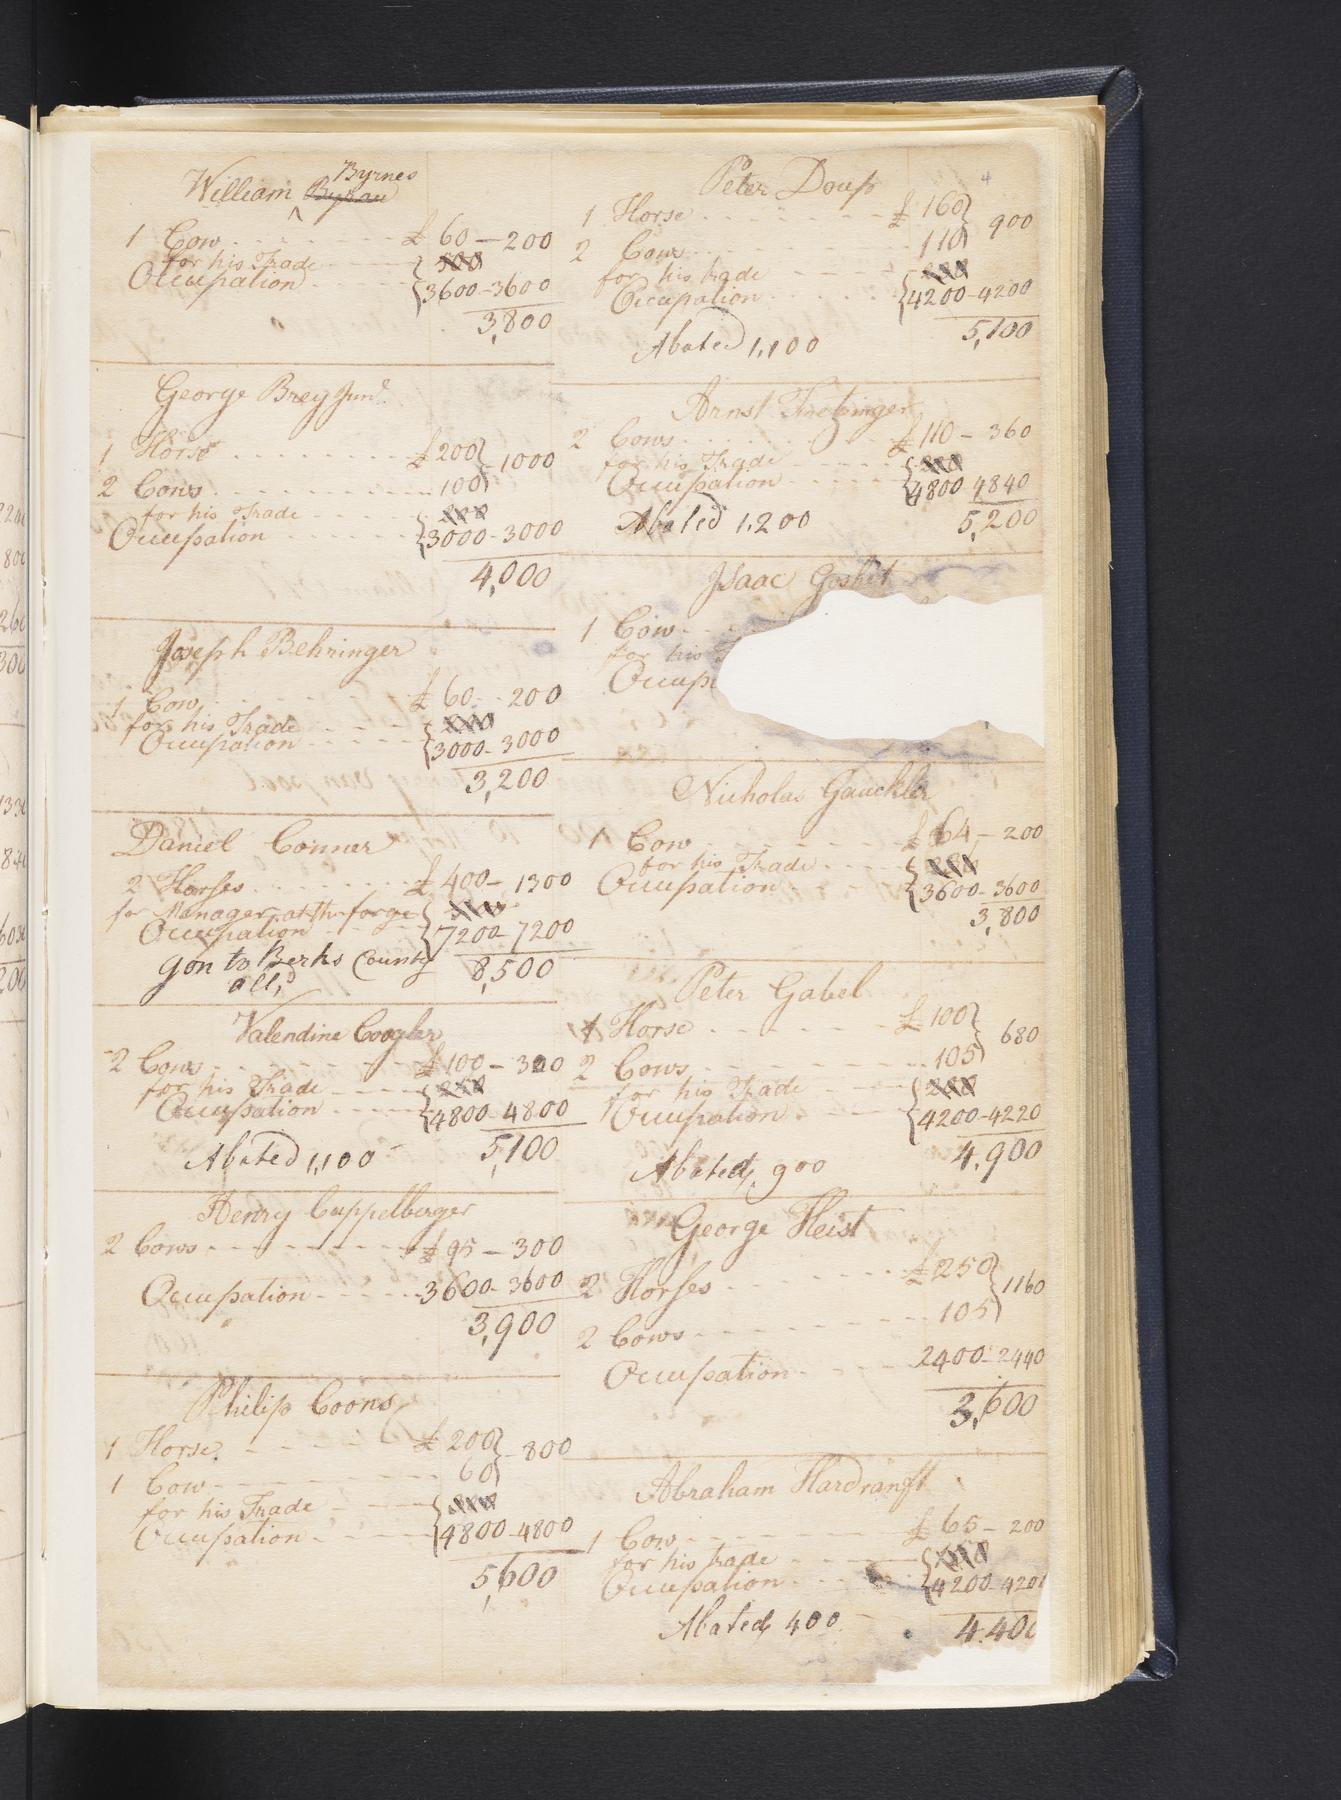 William Byrnes
1 Cow £ 60 — 200
for his Trade
Occupation 3600 - 3600
3,800
George Brey Junr.
1 Horse £ 200 - 1000
2 Cows 100
for his Trade
Occupation 3000 - 3000
4,000
Joseph Behringer
1 Cow £ 60 200
for his Trade
Occupation 3000 - 3000
3,200
Daniel Conner
2 Horses £ 400 - 1300
for Manager at the forge
Occupation 7200 - 7200
gon to Berks County 8,500
Valendine Coogler
2 Cows £ 100 - 300
for his Trade
Occupation 4800 - 4800
5,100
Abated 1,100
Henry Cuppelberger
2 Cows £ 95 — 300
Occupation 3600 - 3600
3,900
Philip Coons
1 Horse £ 200 - 800
1 Cow 60
for his Trade
Occupation 4800 - 4800
5,600
Peter Doup
1 Horse £ 160 900
2 Cows 110
for his trade
Occupation 4200 - 4200
5,100
Abated 1,100
Arnst
2 Cows £ 110 - 360
for his Trade
Occupation 4800 4840
Abated 1,200 5,200
Isaac
1 Cow
for his
Occup
Nicholas Gauckler
1 Cow £ 64 - 200
for his Trade
Occupation 3600 - 3600
3,800
Peter Gabel
1 Horse £ 100 680
2 Cows 105
for his Trade
Occupation 4200 - 4220
4,900
Abated, 900
George Heist
2 Horses £ 250 1160
2 Cows 105
Occupation 2400 - 2440
3,600
Abraham Hardranft
1 Cow £ 65 - 200
for his trade
Occupation 4200 - 420
Abated, 400 4,40